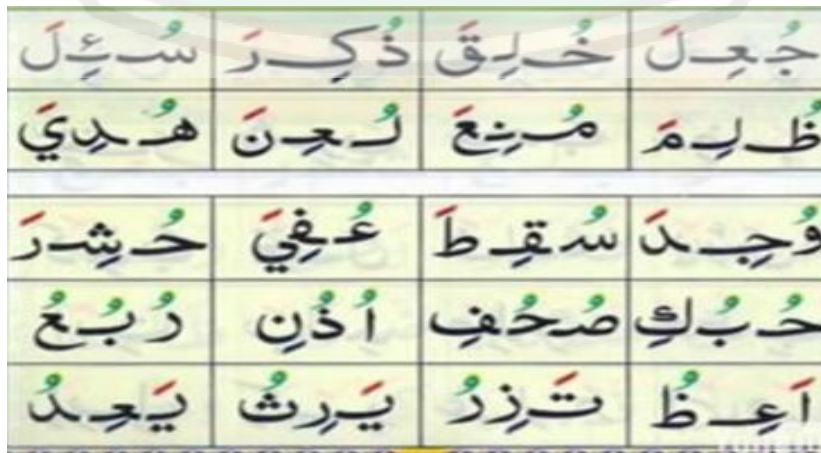 جُعِلَ خُلِقَ ذُكِرَ سُئِلَ
ظُلِمَ مُنِعَ لُعِنَ هُدِيَ
وُجِدَ سُقِطَ عُفِيَ حُشِرَ
حُبُكِ صُحُفِ اُذُنِ رُبُعُ
اَعِظُ تَزِرُ يَرِثُ يَعِدُ